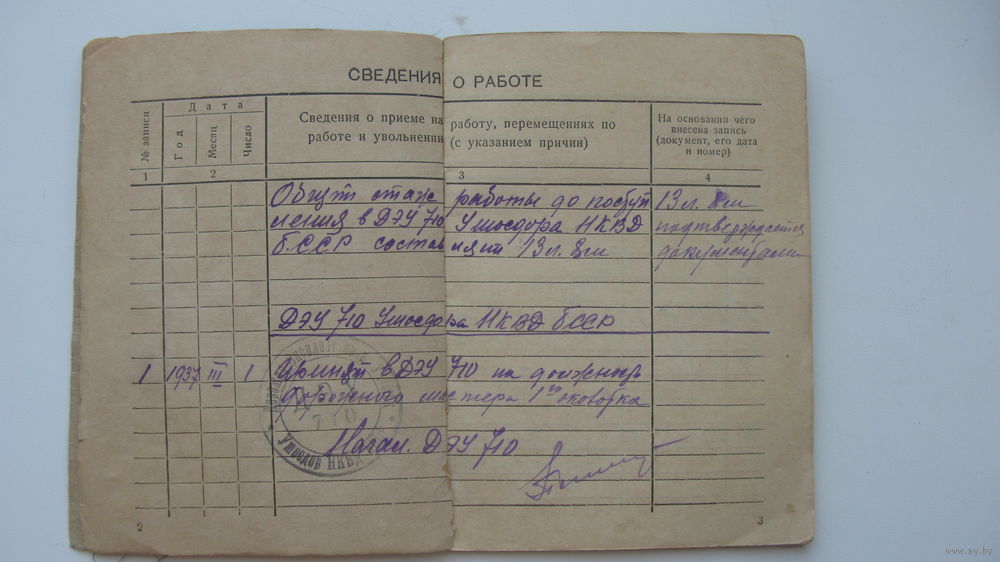 СВЕДЕНИЯ О РАБОТЕ
№ записи
Дата
Год
Месяц
Число
Сведения о приеме на работу, перемещениях по
работе и увольнении (с указанием причин)
На основании чего
внесена запись
(документ, его дата
и номер)
1
2
3
4
Общий стаж работы до поступ
ления в ДЭУ 710 Ушосдора НКВД
БССР составляет 13 л. 8 м
13 л. 8 м
подтверждается
документами
ДЭУ 710 Ушосдора НКВД БССР
1 1937 III 1 Принят в ДЭУ 710 на должность
дорожного мастера 1го околотка
Начал. ДЭУ 710
710
Ушосдор НКВД
2
3
www.ay.by